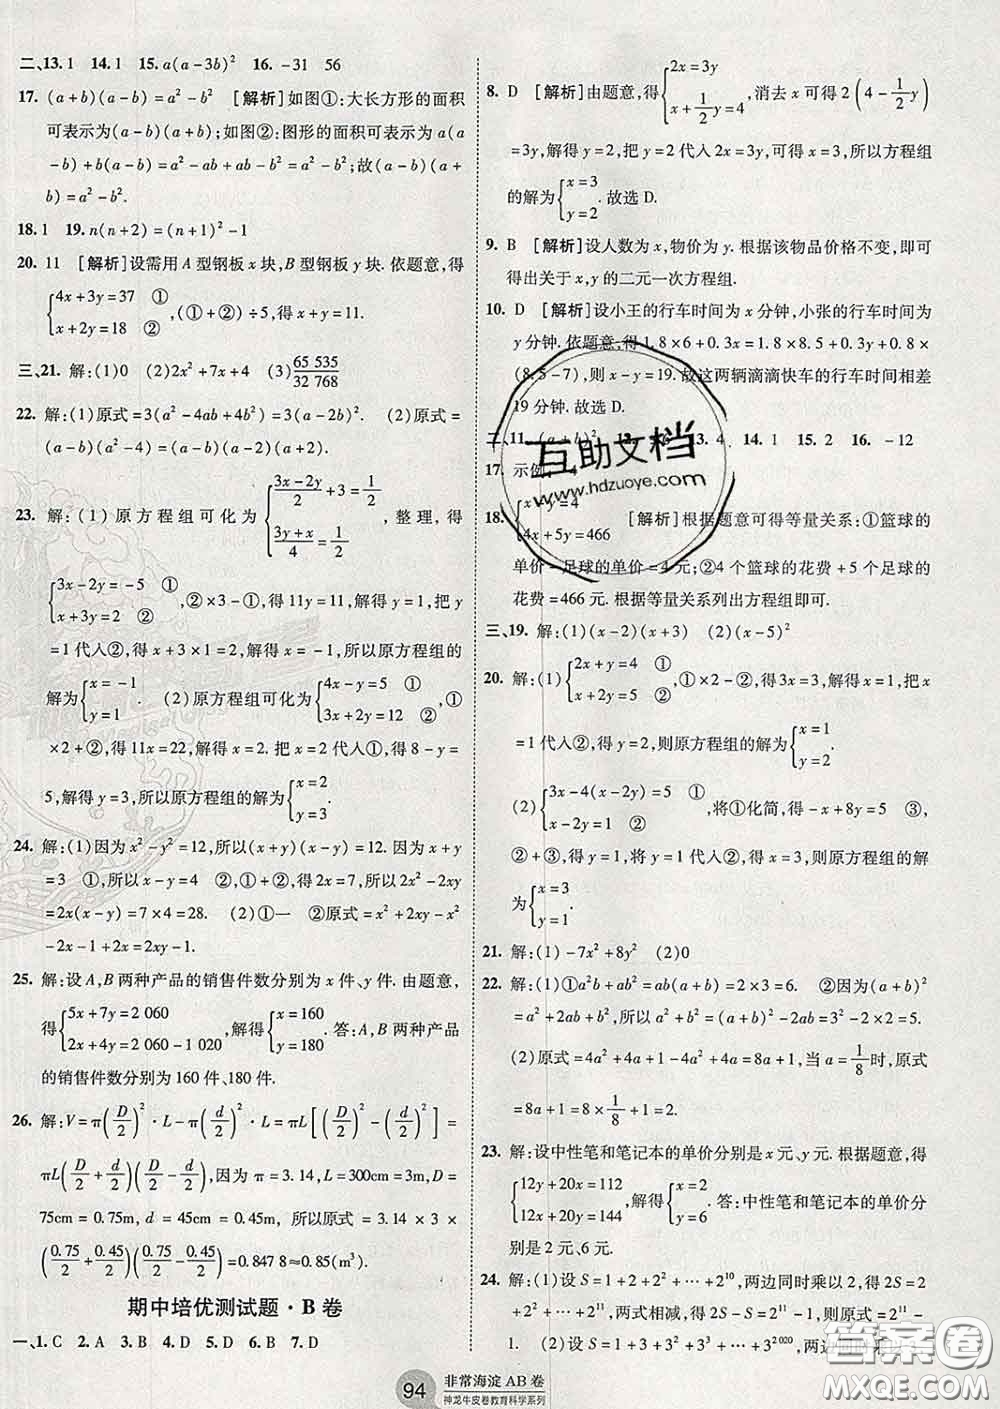 二、13.1　14.1　15.a(a-3b)²　16.-31　56
17.(a+b)(a-b)=a²-b²　[解析]如图①:大长方形的面积
可表示为(a-b)(a+b);如图②:图形的面积可表示为a(a
-b)+b(a-b)=a²-ab+ab-b²=a²-b²;故(a-b)(a+
b)=a²-b².
18.1　19.n(n+2)=(n+1)²-1
20.11　[解析]设需用A型钢板x块,B型钢板y块.依题意,得
{4x+3y=37　①
x+2y=18　② ,(①+②)÷5,得x+y=11.
三、21.解:(1)0　(2)2x²+7x+4　(3)65 535/32 768
22.解:(1)原式=3(a²-4ab+4b²)=3(a-2b)².　(2)原式=
(a-b)(a²-4)=(a-b)(a-2)(a+2).
23.解:(1)原方程组可化为{(3x-2y)/2+3=1/2
(3y+x)/4=1/2 ,整理,得
{3x-2y=-5　①
x+3y=2　② ,②×3-①,得11y=11,解得y=1,把y
=1代入②,得x+3×1=2,解得x=-1,所以原方程组的
解为{x=-1
y=1 .　(2)原方程组可化为{4x-y=5　①
3x+2y=12　② ,①
×2+②,得11x=22,解得x=2.把x=2代入①,得8-y=
5,解得y=3,所以原方程组的解为{x=2
y=3 .
24.解:(1)因为x²-y²=12,所以(x+y)(x-y)=12.因为x+y
=3　①,所以x-y=4　②,①+②,得2x=7,所以2x²+2xy
=2x(x+y)=7×4=28.　(2)①一　②原式=x²+2xy-x²
-2x-1+2x=2xy-1.
25.解:设A,B两种产品的销售件数分别为x件、y件.由题意,
得{5x+7y=2 060
2x+4y=2 060-1 020 ,解得{x=160
y=180 .答:A,B两种产品
的销售件数分别为160件、180件.
26.解:V=π(D/2)²·L-π(d/2)²·L=πL[(D/2)²-(d/2)²]=
πL(D/2+d/2)(D/2-d/2),因为π=3.14,L=300cm=3m,D=
75cm=0.75m,d=45cm=0.45m,所以原式=3.14×3×
(0.75/2+0.45/2)(0.75/2-0.45/2)=0.847 8≈0.85(m³).
期中培优测试题·B卷
一、1.C　2.A　3.B　4.D　5.D　6.B　7.D
8.D　[解析]由题意,得{2x=3y
x+1/2y=4 ,消去x可得2(4-1/2y)
=3y,解得y=2,把y=2代入2x=3y,可得x=3,所以方程组
的解为{x=3
y=2 .故选D.
9.B　[解析]设人数为x,物价为y.根据该物品价格不变,即可
得出关于x,y的二元一次方程组.
10.D　[解析]设小王的行车时间为x分钟,小张的行车时间为
y分钟.依题意,得1.8×6+0.3x=1.8×8.5+0.3y+0.8×
(8.5-7),则x-y=19.故这两辆滴滴快车的行车时间相差
19分钟.故选D.
二、11.(a+b)²　12.　13.4　14.1　15.2　16.-12
17.示例:
18.{x-y=4
4x+5y=466　[解析]根据题意可得等量关系:①篮球的
单价-足球的单价=4元;②4个篮球的花费+5个足球的
花费=466元.根据等量关系列出方程组即可.
三、19.解:(1)(x-2)(x+3)　(2)(x-5)²
20.解:(1){2x+y=4　①
x+2y=5　② ,①×2-②,得3x=3,解得x=1,把x
=1代入①得y=2,则原方程组的解为{x=1
y=2 .
(2){3x-4(x-2y)=5　①
x-2y=1　② ,将①化简,得-x+8y=5　③,
②+③,得y=1,将y=1代入②,得x=3,则原方程组的解
为{x=3
y=1 .
21.解:(1)-7x²+8y²　(2)0
22.解:(1)①a²b+ab²=ab(a+b)=2×3=6.　②因为(a+b)²
=a²+2ab+b²,所以a²+b²=(a+b)²-2ab=3²-2×2=5.
(2)原式=4a²+4a+1-4a²+4a=8a+1,当a=1/8时,原式
=8a+1=8×1/8+1=2.
23.解:设中性笔和笔记本的单价分别是x元、y元.根据题意,得
{12y+20x=112
12x+20y=144 ,解得{x=2
y=6 .答:中性笔和笔记本的单价分
别是2元、6元.
24.解:(1)设S=1+2+2²+…+2¹⁰,两边同时乘以2,得2S=2
+2²+…+2¹¹,两式相减,得2S-S=2¹¹-1,则原式=2¹¹-
1.　(2)设S=1+3+3²+3³+…+3²⁰²⁰,两边同
94
非常海淀AB卷
神龙牛皮卷教育科学系列
互助文档
www.hdzuoye.com
答案卷
MXQE.COM